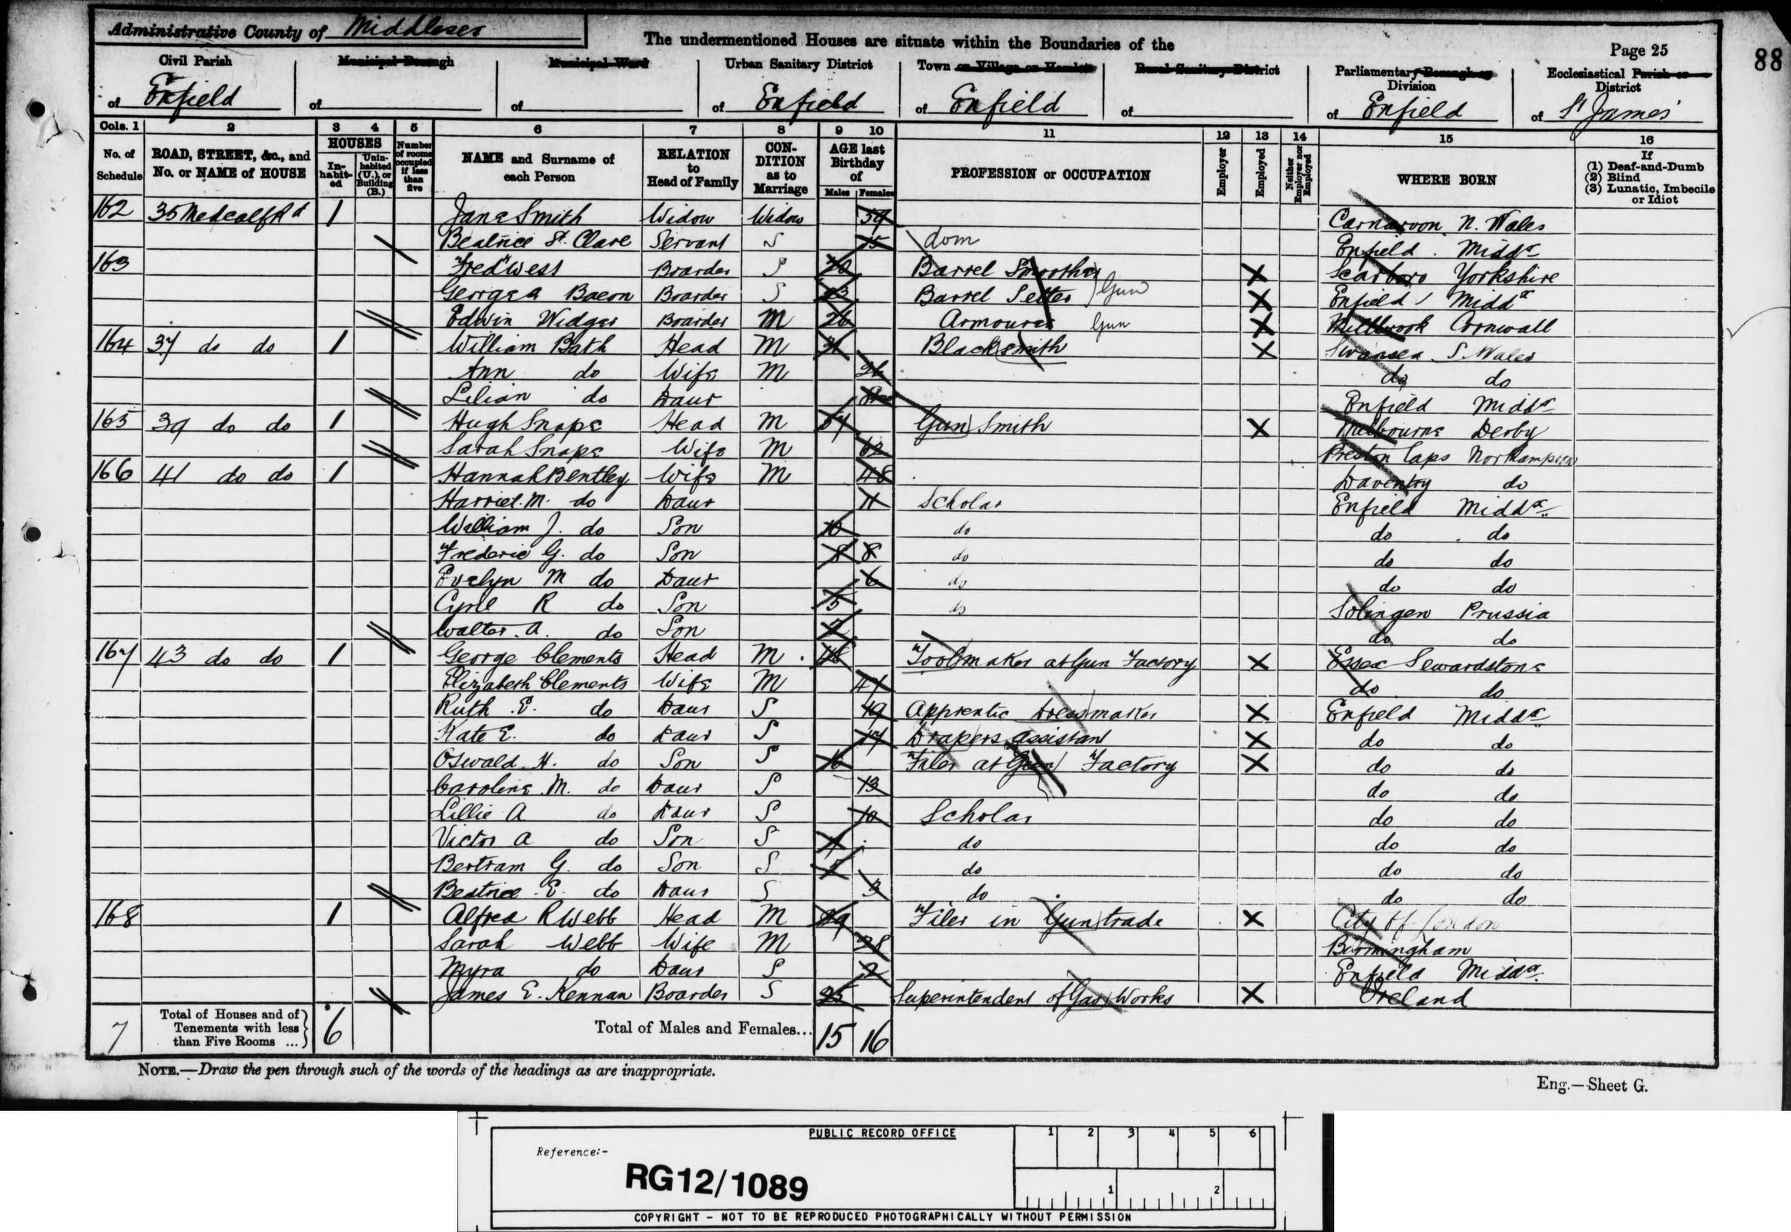 Administrative County of Middlesex
The undermentioned Houses are situate within the Boundaries of the
Page 25
88
Civil Parish of Enfield
Municipal Borough of
Municipal Ward of
Urban Sanitary District of Enfield
Town or Village or Hamlet of Enfield
Rural Sanitary District of
Parliamentary Borough or Division of Enfield
Ecclesiastical Parish or District of St James'
Cols. 1 2 3 4 5 6 7 8 9 10 11 12 13 14 15 16
No. of Schedule
ROAD, STREET, &c., and No. or NAME of HOUSE
HOUSES
Inhabited
Uninhabited (U.), or Building (B.)
Number of rooms occupied if less than five
NAME and Surname of each Person
RELATION to Head of Family
CONDITION as to Marriage
AGE last Birthday of
Males Females
PROFESSION or OCCUPATION
Employer
Employed
Neither Employer nor Employed
WHERE BORN
If (1) Deaf-and-Dumb (2) Blind (3) Lunatic, Imbecile or Idiot
162 35 Metcalf Rd 1 Jane Smith Widow Widow 59 Carnarvon N. Wales
Beatrice St. Clare Servant S 15 dom Enfield Middx
163 Fred West Boarder S Barrel X Scarboro Yorkshire
George A Bacon Boarder S 23 Barrel Setter Gun X Enfield Middx
Edwin Widger Boarder M 26 Armourer Gun X Millbrook Cornwall
164 37 do do 1 William Bath Head M Blacksmith X Swansea S. Wales
Ann do Wife M 26 do do
Lilian do Daur Enfield Middx
165 39 do do 1 Hugh Snape Head M Gun Smith X Melbourne Derby
Sarah Snape Wife M 62 Preston Caps Northampton
166 41 do do 1 Hannah Bentley Wife M 48 Daventry do
Harriet M. do Daur 11 Scholar Enfield Middx
William J. do Son 10 do do do
Frederic G. do Son 8 8 do do do
Evelyn M do Daur 6 do do do
Cyril R do Son 5 do Solingen Prussia
Walter A. do Son do do
167 43 do do 1 George Clements Head M 48 Toolmaker at Gun Factory X Essex Sewardstone
Elizabeth Clements Wife M 47 do do
Ruth E. do Daur S 19 Apprentic Dressmaker X Enfield Middx
Kate E. do Daur S 17 Drapers assistan X do do
Oswald H. do Son S 16 Filer at Gun Factory X do do
Caroline M. do Daur S 13 do do
Lillie A do Daur S 10 Scholar do do
Victor A do Son S do do do
Bertram G. do Son S do do do
Beatrice E. do Daur S 3 do do do
168 1 Alfred R Webb Head M 29 Filer in Gun trade X City of London
Sarah Webb Wife M 28 Birmingham
Myra do Daur S 2 Enfield Middx
James E. Kennan Boarder S 25 Superintendent of Gas Works X Ireland
7 Total of Houses and of Tenements with less than Five Rooms ... 6 Total of Males and Females... 15 16
NOTE.—Draw the pen through such of the words of the headings as are inappropriate.
Eng.—Sheet G.
PUBLIC RECORD OFFICE
1 2 3 4 5 6
Reference:-
RG12/1089
1 2
COPYRIGHT - NOT TO BE REPRODUCED PHOTOGRAPHICALLY WITHOUT PERMISSION